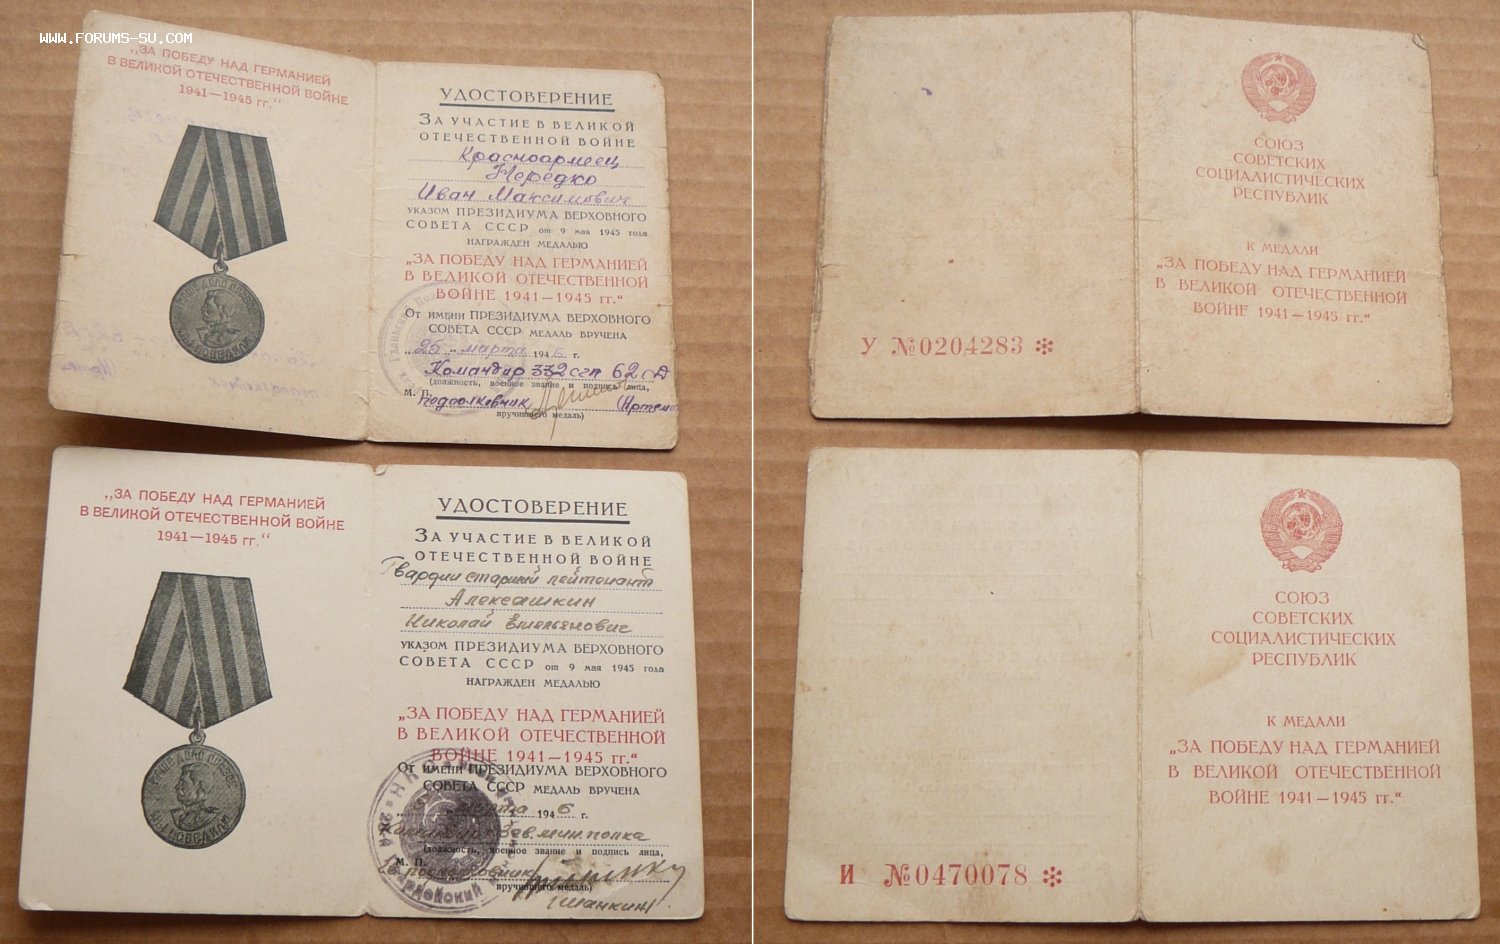 www.FORUMS-SU.COM
„ЗА ПОБЕДУ НАД ГЕРМАНИЕЙ
В ВЕЛИКОЙ ОТЕЧЕСТВЕННОЙ ВОЙНЕ
1941—1945 гг.“
УДОСТОВЕРЕНИЕ
ЗА УЧАСТИЕ В ВЕЛИКОЙ
ОТЕЧЕСТВЕННОЙ ВОЙНЕ
Красноармеец
Нередко
Иван Максимович
УКАЗОМ ПРЕЗИДИУМА ВЕРХОВНОГО
СОВЕТА СССР от 9 мая 1945 года
НАГРАЖДЕН МЕДАЛЬЮ
„ЗА ПОБЕДУ НАД ГЕРМАНИЕЙ
В ВЕЛИКОЙ ОТЕЧЕСТВЕННОЙ
ВОЙНЕ 1941—1945 гг.“
ОТ ИМЕНИ ПРЕЗИДИУМА ВЕРХОВНОГО
СОВЕТА СССР МЕДАЛЬ ВРУЧЕНА
„25„ марта 1946 г.
Командир 332 сгп 62 сд
(должность, военное звание и подпись лица,
М. П. подполковник (Артемо
вручившего медаль)
НАШЕ ДЕЛО ПРАВОЕ
МЫ ПОБЕДИЛИ
СОЮЗ
СОВЕТСКИХ
СОЦИАЛИСТИЧЕСКИХ
РЕСПУБЛИК
К МЕДАЛИ
„ЗА ПОБЕДУ НАД ГЕРМАНИЕЙ
В ВЕЛИКОЙ ОТЕЧЕСТВЕННОЙ
ВОЙНЕ 1941—1945 гг.“
У №0204283 ✻
„ЗА ПОБЕДУ НАД ГЕРМАНИЕЙ
В ВЕЛИКОЙ ОТЕЧЕСТВЕННОЙ ВОЙНЕ
1941—1945 гг.“
УДОСТОВЕРЕНИЕ
ЗА УЧАСТИЕ В ВЕЛИКОЙ
ОТЕЧЕСТВЕННОЙ ВОЙНЕ
Гвардии старший лейтенант
Алексашкин
Николай Емельянович
УКАЗОМ ПРЕЗИДИУМА ВЕРХОВНОГО
СОВЕТА СССР от 9 мая 1945 года
НАГРАЖДЕН МЕДАЛЬЮ
„ЗА ПОБЕДУ НАД ГЕРМАНИЕЙ
В ВЕЛИКОЙ ОТЕЧЕСТВЕННОЙ
ВОЙНЕ 1941—1945 гг.“
ОТ ИМЕНИ ПРЕЗИДИУМА ВЕРХОВНОГО
СОВЕТА СССР МЕДАЛЬ ВРУЧЕНА
марта 1946 г.
мин.полка
(должность, военное звание и подпись лица,
М. П.
подполковник
вручившего медаль)
(Шанкин)
НАШЕ ДЕЛО ПРАВОЕ
МЫ ПОБЕДИЛИ
СОЮЗ
СОВЕТСКИХ
СОЦИАЛИСТИЧЕСКИХ
РЕСПУБЛИК
К МЕДАЛИ
„ЗА ПОБЕДУ НАД ГЕРМАНИЕЙ
В ВЕЛИКОЙ ОТЕЧЕСТВЕННОЙ
ВОЙНЕ 1941—1945 гг.“
И №0470078 ✻